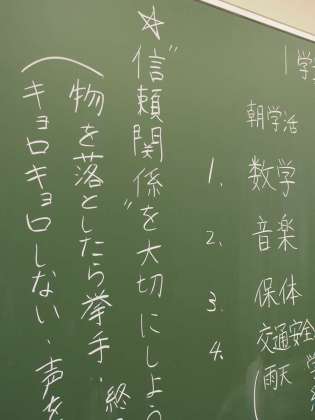 1学
朝学活
1. 数学
2. 音楽
3. 保体
4. 交通安全
(雨天 学
☆"信頼関係"を大切にしよう
(物を落としたら挙手・終
キョロキョロしない、声を